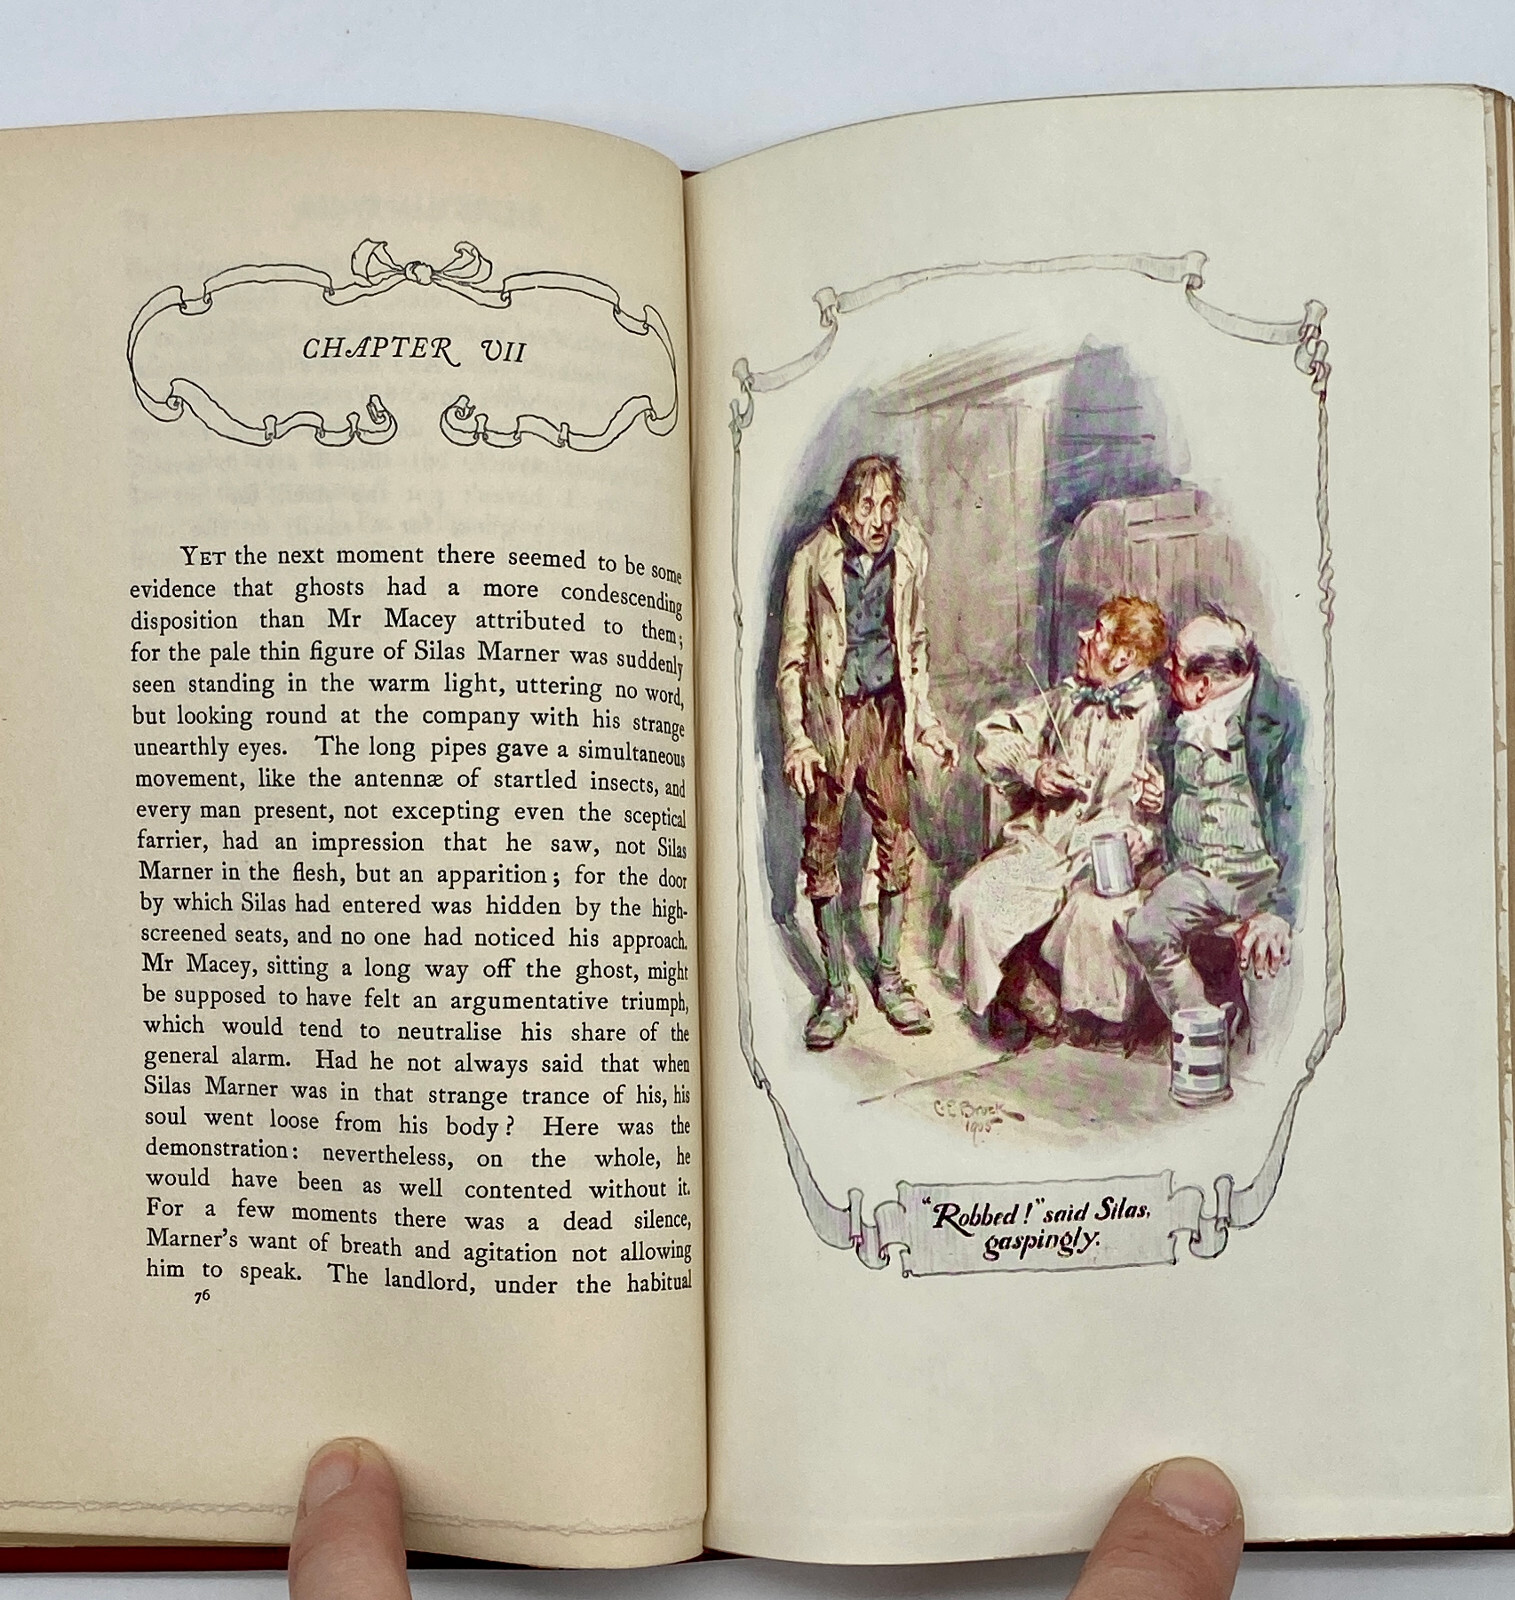 CHAPTER VII
YET the next moment there seemed to be some
evidence that ghosts had a more condescending
disposition than Mr Macey attributed to them;
for the pale thin figure of Silas Marner was suddenly
seen standing in the warm light, uttering no word,
but looking round at the company with his strange
unearthly eyes. The long pipes gave a simultaneous
movement, like the antennæ of startled insects, and
every man present, not excepting even the sceptical
farrier, had an impression that he saw, not Silas
Marner in the flesh, but an apparition; for the door
by which Silas had entered was hidden by the high-
screened seats, and no one had noticed his approach.
Mr Macey, sitting a long way off the ghost, might
be supposed to have felt an argumentative triumph,
which would tend to neutralise his share of the
general alarm. Had he not always said that when
Silas Marner was in that strange trance of his, his
soul went loose from his body? Here was the
demonstration: nevertheless, on the whole, he
would have been as well contented without it.
For a few moments there was a dead silence,
Marner's want of breath and agitation not allowing
him to speak. The landlord, under the habitual
76
C E Brock
1905
"Robbed!" said Silas,
gaspingly.